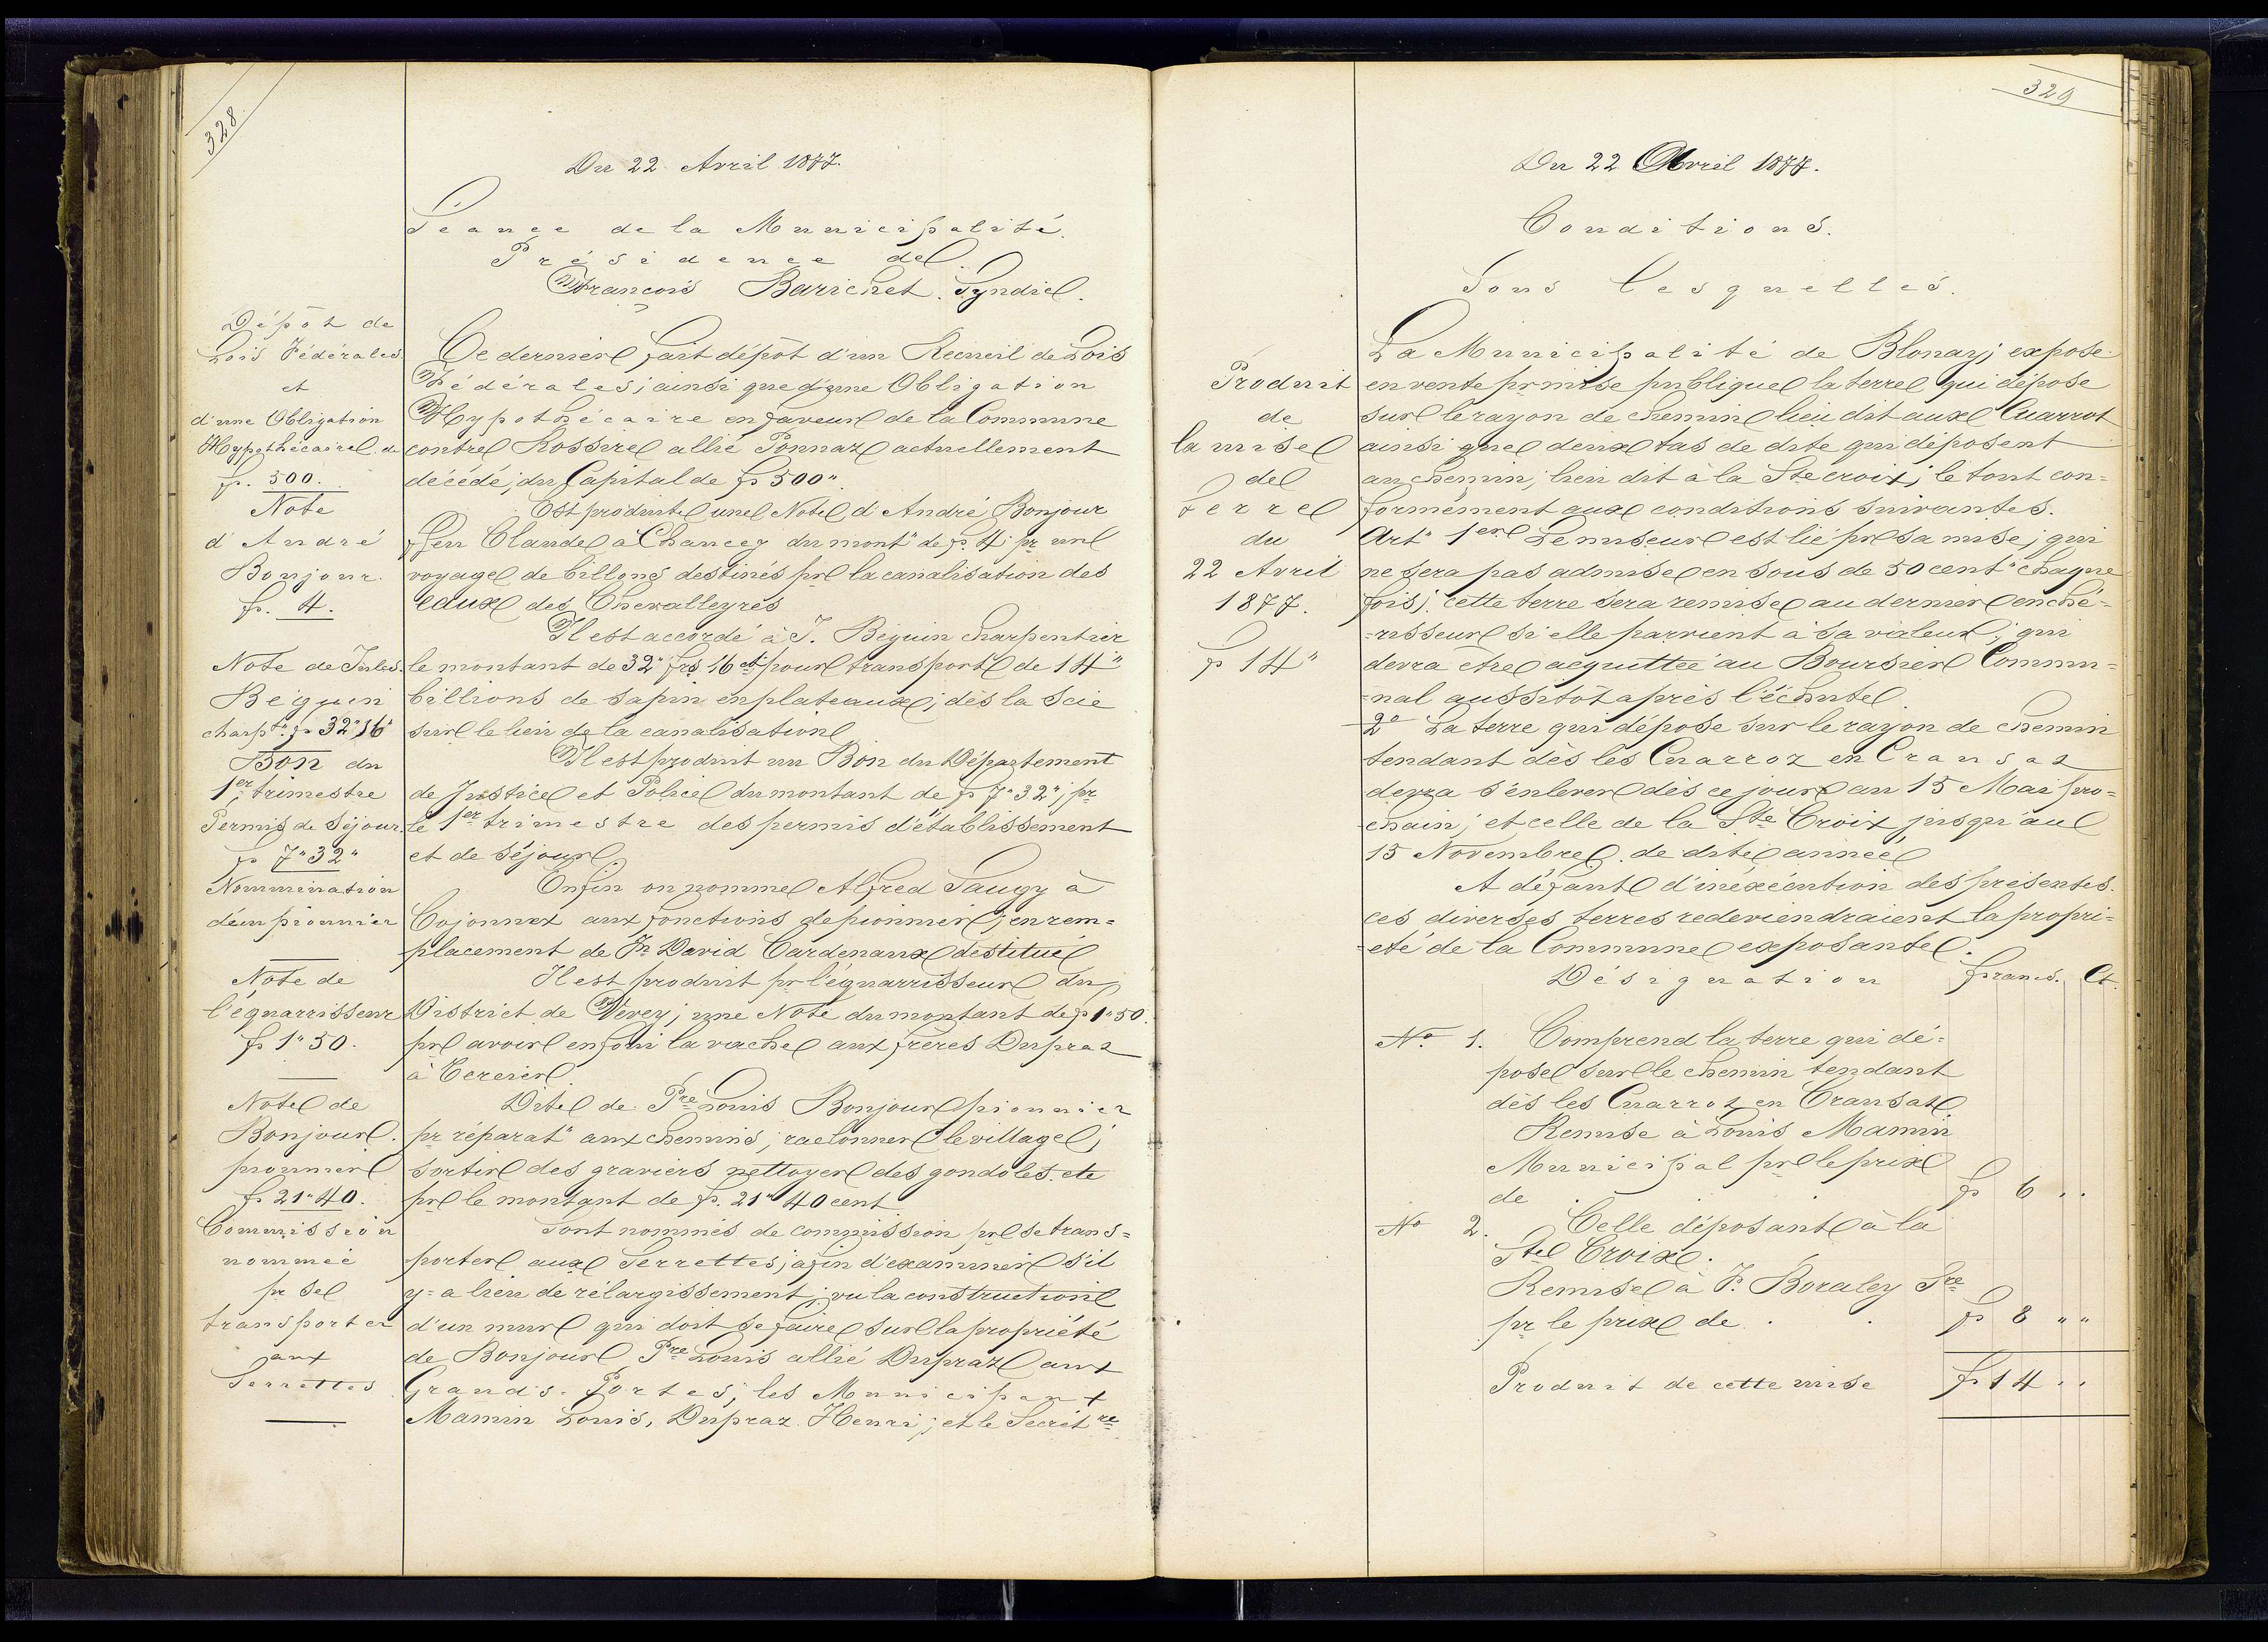 328
Du 22. Avril 1877.
Séance de la Municipalité.
Présidence de
François Barichet. Syndic.
Dépôt de
Lois Fédérales
et
d'une Obligation
Hypothécaire de
fr. 500.
Note
d'André
Bonjour.
fr. 4.
Note de Jules
Béguin
charpt. fr 32"16"
Bon du
1er trimestre
Permis de Séjour.
fr 7"32"
Nommination
d'un pionnier
Note de
l'équarrisseur
fr 1"50.
Note de
Bonjour.
pionnier
fr 21"40.
Commission
nommée
pr se
transporter
aux
Serrettes
Ce dernier fait dépôt d'un Recueil de Lois
Fédérales; ainsi que d'une Obligation
Hypothécaire en faveur de la Commune
contre Rossire allié Ponnaz actuellement
décédé; du Capital de fr 500".
Est produite une Note d'André Bonjour
ffeu Claude à Chancey du mont" de fr. 4; pr une
voyage de billons destinés pr la canalisation des
eaux des Chevalleyres
Il est accordé à J. Béguin charpentier
le montant de 32" frs 16 ct pour transport de 14"
billions de sapin en plateaux; dès la Scie
sur le lieu de la canalisation
Il est produit un Bon du Département
de Justice et Police du montant de fr 7"32"; pr
le 1er trimestre des permis d'établissement
et de séjour.
Enfin on nomme Alfred Saugy à
Cojonnex aux fonctions de pionnier; en rem=
placement de Jn David Cardenaux destitué
Il est produit pr l'équarrisseur du
District de Vevey; une Note du montant de fr 1"50.
pr avoir enfoui la vache aux frères Dupraz
à Tercier.
Dite de Pre Louis Bonjour pionnier
pr réparat" aux chemins; raclonner le village;
sortir des graviers nettoyer des gondoles. etc
pr le montant de fr. 21" 40 cent
Sont nommés de commission pr se trans=
porter aux Serrettes; afin d'examiner s'il
y=a lieu de rélargissement; vu la construction
d'un mur qui doit se faire sur la propriété
de Bonjour Pre Louis allié Dupraz aux
Grands-Portes; les Municipaux
Mamin Louis, Dupraz Henri; et le Secrét re
329
Du 22 Avril 1877.
Conditions.
Sous lesquelles.
Produit
de
la mise
de
terre
du
22 Avril
1877.
fr 14"
La Municipalité de Blonay; expose
en vente pr mise publique la terre qui dépose
sur le rayon de chemin lieu dit aux Cuarrot
ainsi que deux tas de dite qui déposent
au chemin; lieu dit à la Ste croix; le tout con=
formément aux conditions suivantes.
Art" 1er Le miseur est lié pr sa mise; qui
ne sera pas admise en sous de 50 cent" chaque
fois; cette terre sera remise au dernier enché=
=risseur si elle parvient à sa valeur; qui
devra être acquittée au Boursier Commu=
=nal aussitôt après l'échute.
2° La terre qui dépose sur le rayon de chemin
tendant dès les Cuarroz en Cransaz
devra s'enlever dès ce jour au 15 Mai pro=
chain; et celle de la Ste Croix jusqu'au
15 Novembre de dite année
A défaut d'inéxécution des présentes.
ces diverses terres redeviendraient la propri=
=eté de la Commune exposante.
Désignation francs. Ct.
No 1. Comprend la terre qui dé=
pose sur le chemin tendant
dès les Cuarroz en Cransaz
Remise à Louis Mamin
Municipal pr le prix
de . fr 6 ..
No 2. Celle déposant à la
Ste Croix.
Remise à F. Boraley Sre
pr le prix de . . fr 8 ""
Produit de cette mise fr 14 ..